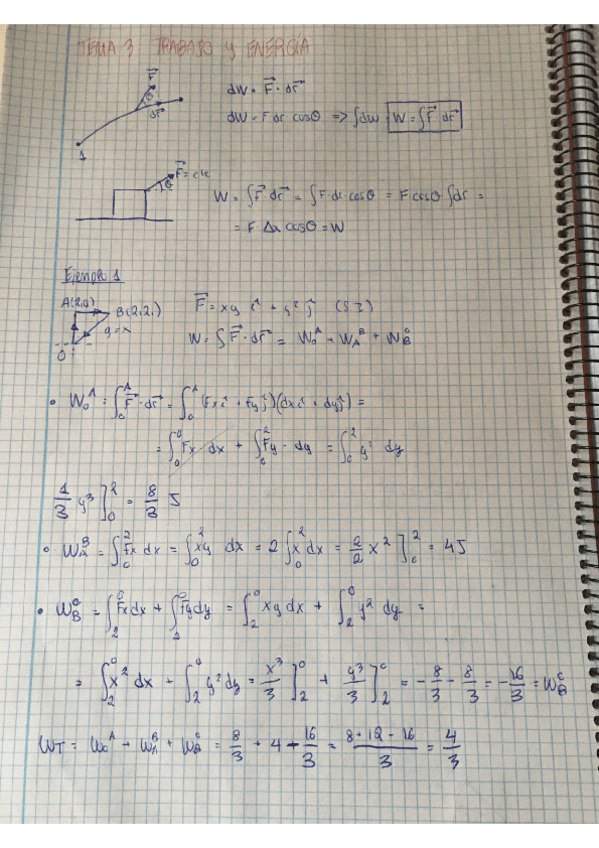 TEMA 3 TRABAJO y ENERGÍA
F⃗
θ
dr⃗
1
dW = F⃗ · dr⃗
dW = F dr cosθ => ∫dW = W = ∫F⃗·dr⃗
F⃗ = cte
θ
W = ∫F⃗·dr⃗ = ∫F·dr·cosθ = F cosθ ∫dr =
= F · Δx cosθ = W
Ejemplo 1
B(2,2)
y=x
O
F⃗ = xy î + y² ĵ (SI)
W = ∫F⃗·dr⃗ = W₀ᴬ + W_A^B + W_B^C
• W₀ᴬ = ∫₀ᴬ F⃗·dr⃗ = ∫₀ᴬ (Fx î + Fy ĵ)(dx î + dy ĵ) =
= ∫₀⁰ Fx · dx + ∫₀² Fy · dy = ∫₀² y² dy
1/3 y³ ]₀² = 8/3 J
• W_A^B = ∫₀² Fx dx = ∫₀² xy dx = 2 ∫₀² x dx = 2/2 x² ]₀² = 4J
• W_B^C = ∫₂⁰ Fx dx + ∫₂⁰ Fy dy = ∫₂⁰ xy dx + ∫₂⁰ y² dy =
= ∫₂⁰ x² dx + ∫₂⁰ y² dy = x³/3 ]₂⁰ + y³/3 ]₂⁰ = -8/3 - 8/3 = -16/3 = W_B^C
W_T = W₀ᴬ + W_A^B + W_B^C = 8/3 + 4 - 16/3 = (8+12-16)/3 = 4/3